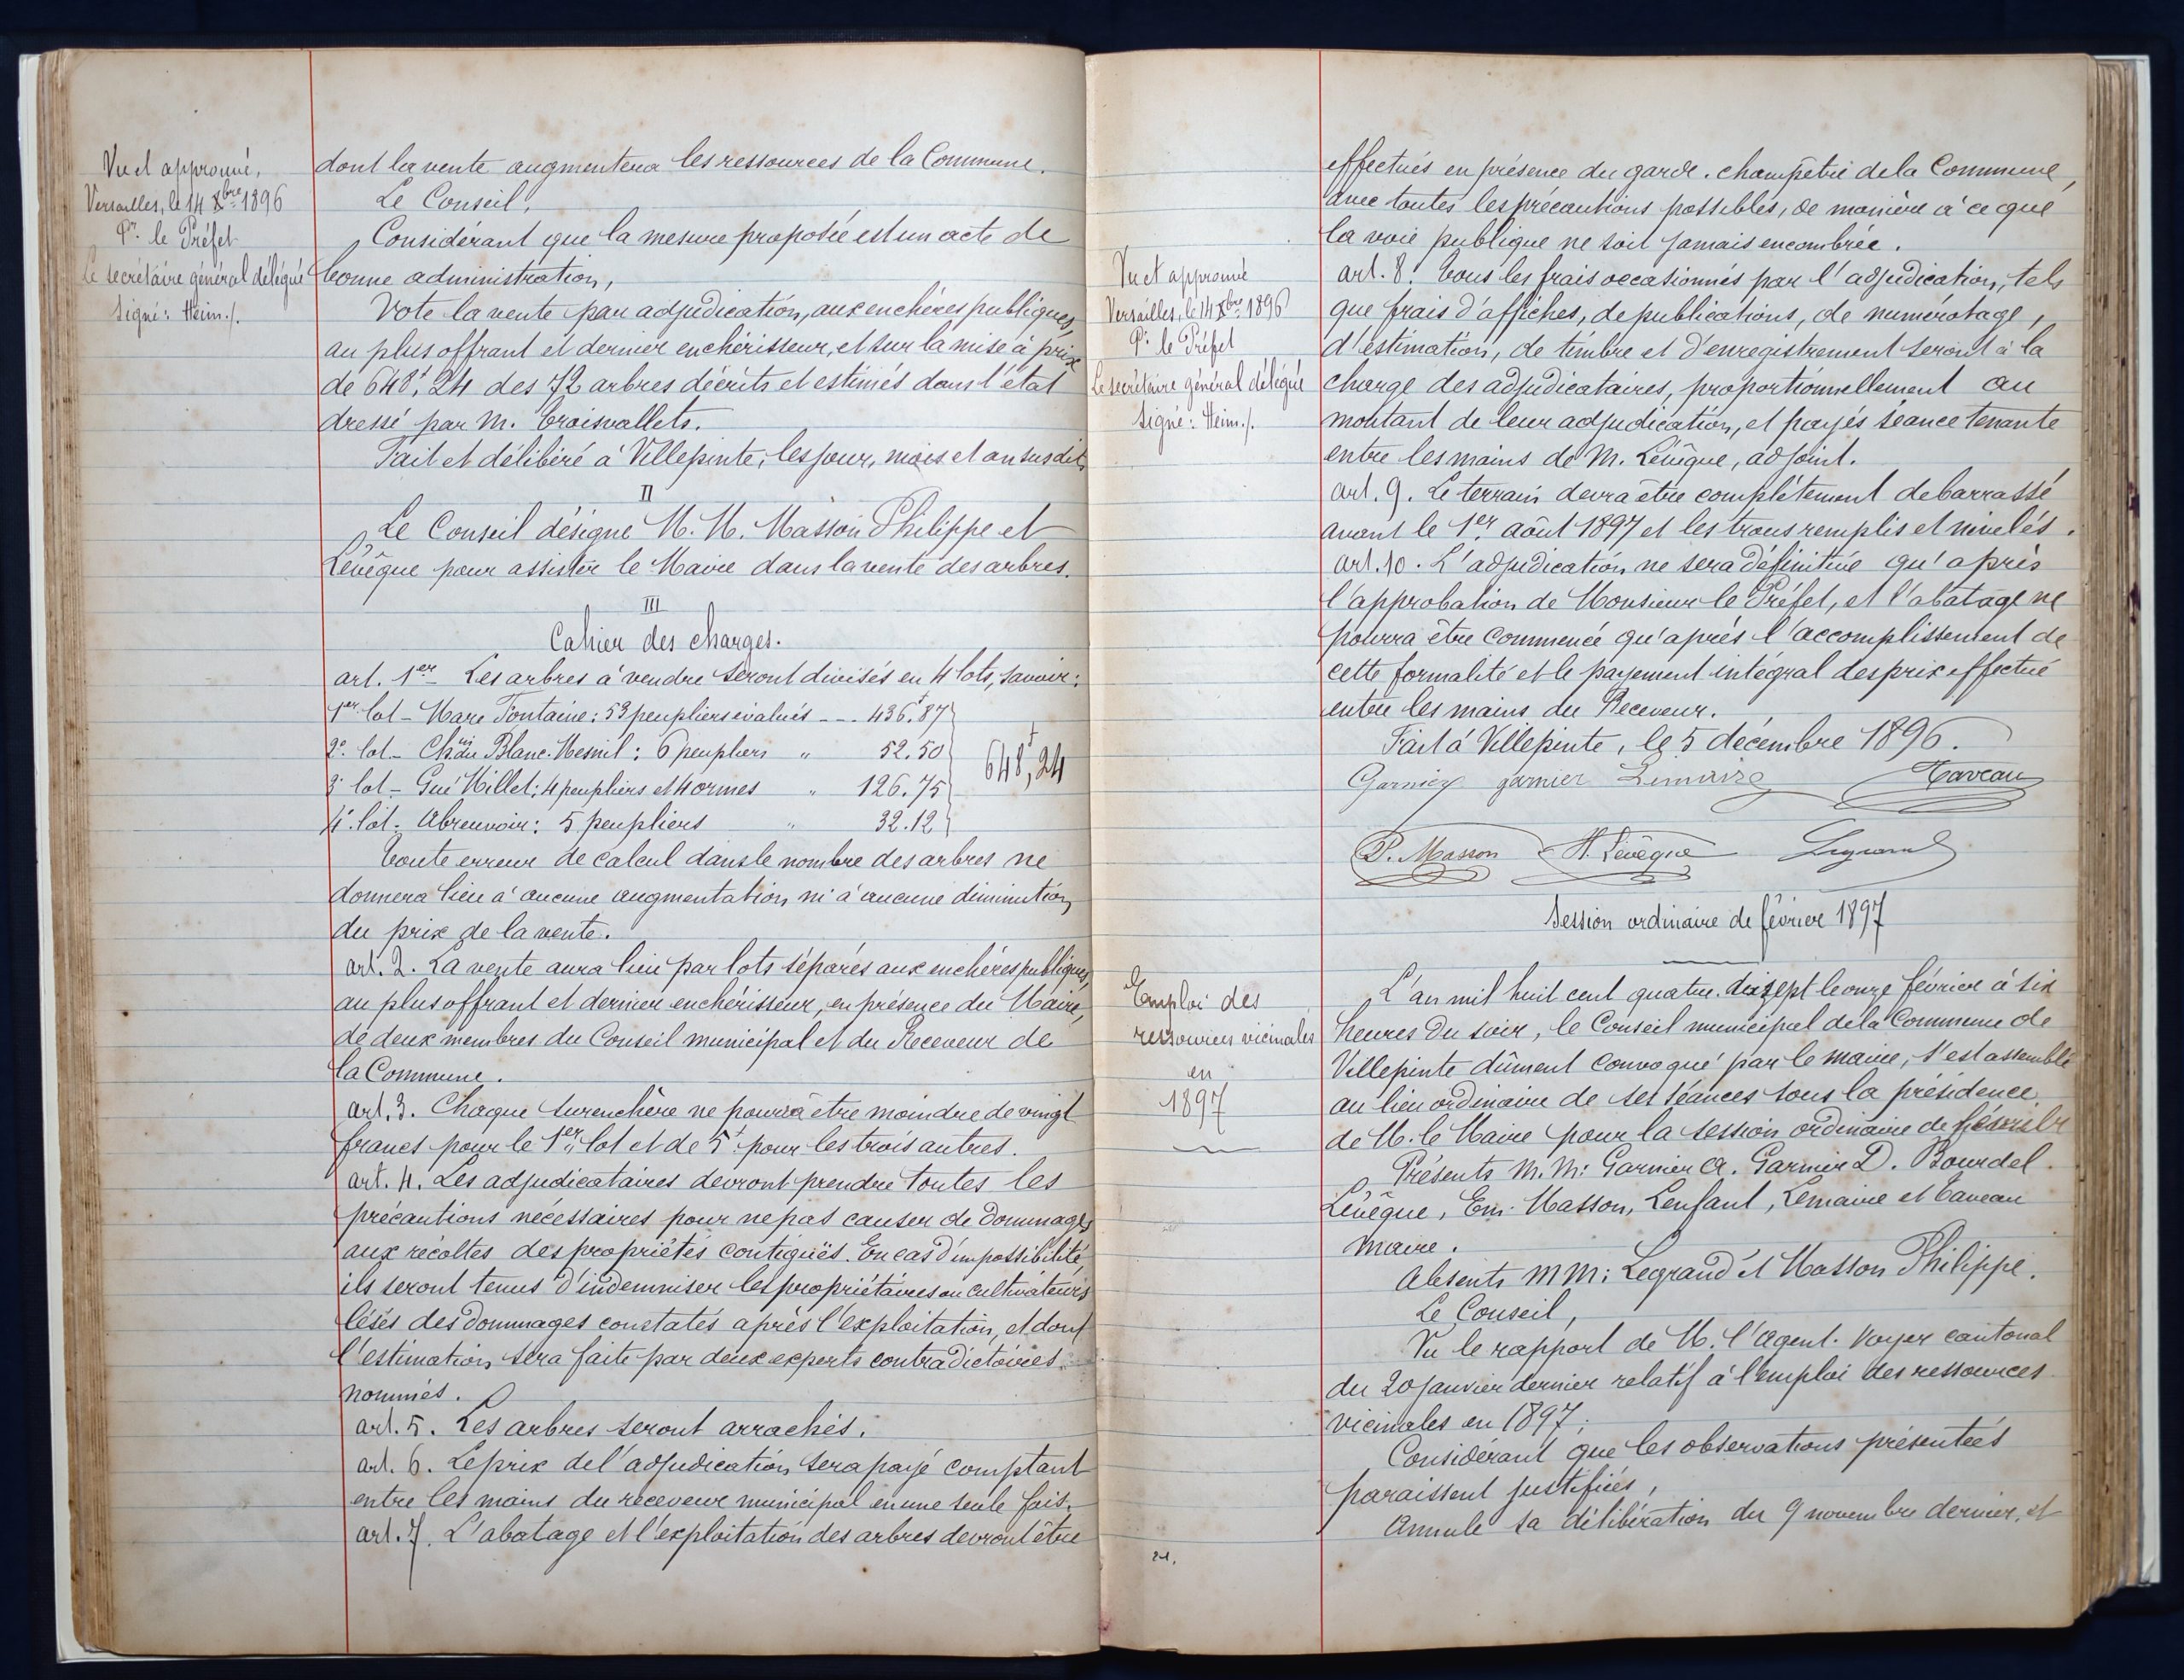 Vu et approuvé,
Versailles, le 14 Xbre 1896
Pr. le Préfet
Le secrétaire général délégué
Signé : Heim./.
dont la vente augmentera les ressources de la Commune.
Le Conseil,
Considérant que la mesure proposée est un acte de
bonne administration,
Vote la vente par adjudication, aux enchères publiques,
au plus offrant et dernier enchérisseur, et sur la mise à prix
de 648f,24 des 72 arbres décrits et estimés dans l'état
dressé par M. Croisvallets.
Fait et délibéré à Villepinte, les jour, mois et an susdits
II
Le Conseil désigne M. M. Masson Philippe et
Lévêque pour assister le Maire dans la vente des arbres.
III
Cahier des charges.
art. 1er Les arbres à vendre seront divisés en 4 lots, savoir :
1er lot - Mare Fontaine : 53 peupliers évalués - - - 436f.87
2e lot - Chin du Blanc-Mesnil : 6 peupliers " 52.50
3e lot - Gué Millet : 4 peupliers et 4 ormes " 126.75
4e lot - Abreuvoir : 5 peupliers " 32.12
648f,24
Toute erreur de calcul dans le nombre des arbres ne
donnera lieu à aucune augmentation ni à aucune diminution
du prix de la vente.
art. 2. La vente aura lieu par lots séparés aux enchères publiques,
au plus offrant et dernier enchérisseur, en présence du Maire,
de deux membres du Conseil municipal et du Receveur de
la Commune.
art. 3. Chaque surenchère ne pourra être moindre de vingt
francs pour le 1er lot et de 5f pour les trois autres.
art. 4. Les adjudicataires devront prendre toutes les
précautions nécessaires pour ne pas causer de dommages
aux récoltes des propriétés contiguës. En cas d'impossibilité,
ils seront tenus d'indemniser les propriétaires ou cultivateurs
lésés des dommages constatés après l'exploitation, et dont
l'estimation sera faite par deux experts contradictoires
nommés.
art. 5. Les arbres seront arrachés.
art. 6. Le prix de l'adjudication sera payé comptant
entre les mains du receveur municipal en une seule fois.
art. 7. L'abatage et l'exploitation des arbres devront être
effectués en présence du garde-champêtre de la Commune,
avec toutes les précautions possibles, de manière à ce que
la voie publique ne soit jamais encombrée.
Vu et approuvé
Versailles, le 14 Xbre 1896
Pr. le Préfet
Le secrétaire général délégué
Signé : Heim./.
art. 8. Tous les frais occasionnés par l'adjudication, tels
que frais d'affiches, de publications, de numérotage,
d'estimation, de timbre et d'enregistrement seront à la
charge des adjudicataires, proportionnellement au
montant de leur adjudication, et payés séance tenante
entre les mains de M. Lévêque, adjoint.
art. 9. Le terrain devra être complètement debarrassé
avant le 1er août 1897 et les trous remplis et nivelés.
art. 10. L'adjudication ne sera définitive qu'après
l'approbation de Monsieur le Préfet, et l'abatage ne
pourra être commencé qu'après l'accomplissement de
cette formalité et le payement intégral des prix effectué
entre les mains du Receveur.
Fait à Villepinte, le 5 décembre 1896.
Garnier garnier Lemaire Taveau
P. Masson H. Lévêque Legrand
Session ordinaire de février 1897
Emploi des
ressources vicinales
en
1897
L'an mil huit cent quatre. dix sept le onze février à six
heures du soir, le Conseil municipal de la Commune de
Villepinte dûment convoqué par le maire, s'est assemblé
au lieu ordinaire de ses séances sous la présidence
de M. le Maire pour la session ordinaire de février
Présents M. M : Garnier A. Garnier D. Bourdel.
Lévêque, Em. Masson, Lenfant, Lemaire et Taveau
maire.
Absents MM : Legrand et Masson Philippe.
Le Conseil,
Vu le rapport de M. l'agent-voyer cantonal
du 20 janvier dernier relatif à l'emploi des ressources
vicinales en 1897 ;
Considérant que les observations présentées
paraissent justifiées,
Annule sa délibération du 9 novembre dernier, et
21.